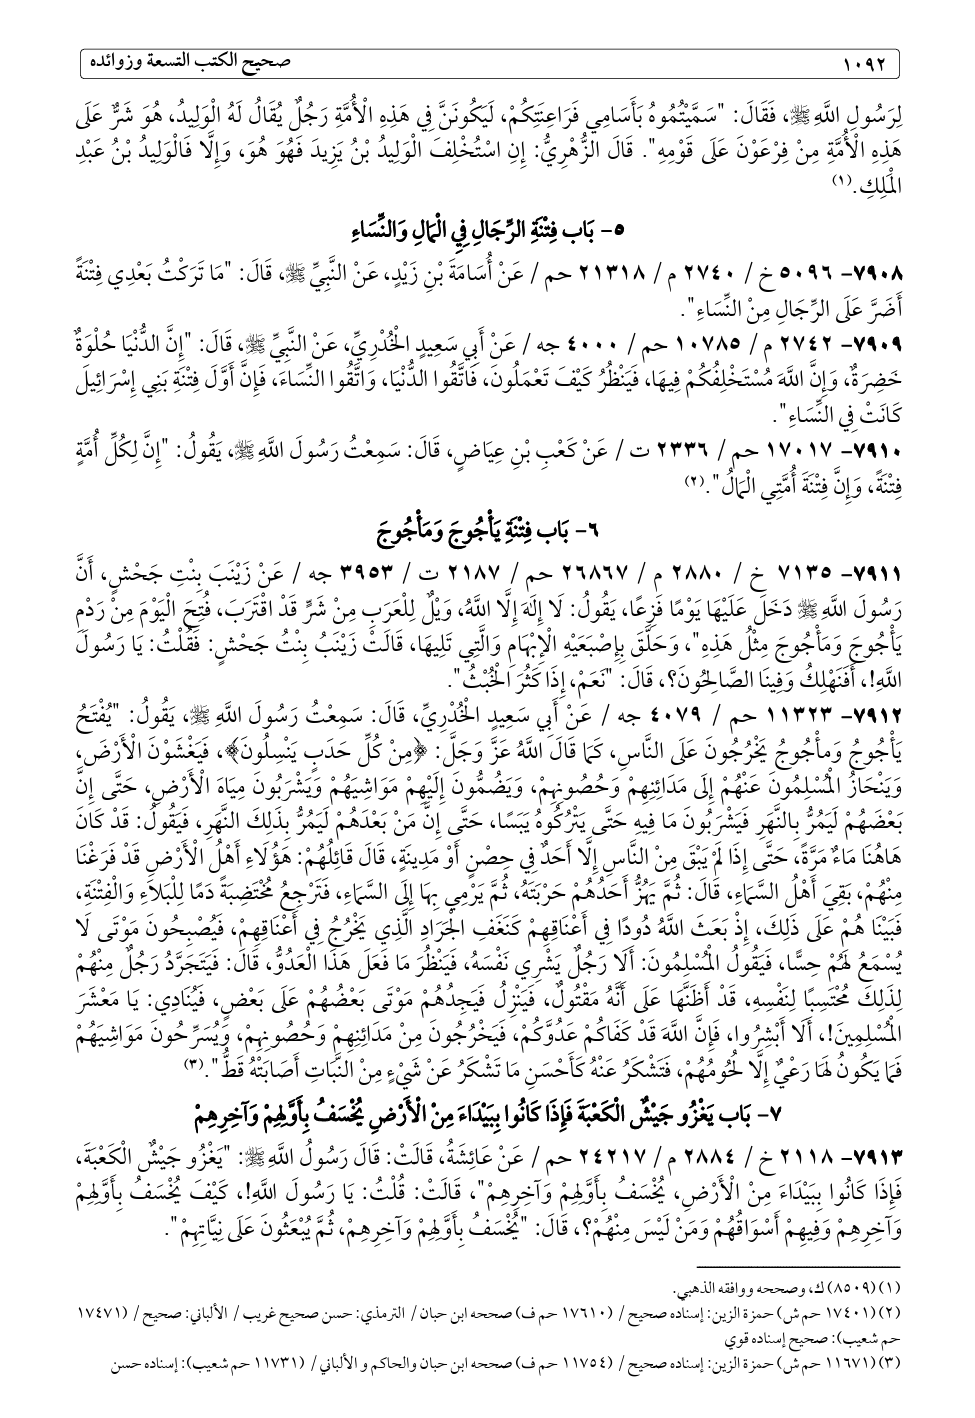 ١٠٩٢ صحيح الكتب التسعة وزوائده
لِرَسُولِ اللَّهِ ﷺ، فَقَالَ: "سَمَّيْتُمُوهُ بَأَسَامِي فَرَاعِنَتِكُمْ، لَيَكُونَنَّ فِي هَذِهِ الْأُمَّةِ رَجُلٌ يُقَالُ لَهُ الْوَلِيدُ، هُوَ شَرٌّ عَلَى
هَذِهِ الْأُمَّةِ مِنْ فِرْعَوْنَ عَلَى قَوْمِهِ". قَالَ الزُّهْرِيُّ: إِنِ اسْتُخْلِفَ الْوَلِيدُ بْنُ يَزِيدَ فَهُوَ هُوَ، وَإِلَّا فَالْوَلِيدُ بْنُ عَبْدِ
الْمَلِكِ.(١)
٥- بَاب فِتْنَةِ الرِّجَالِ فِي الْمَالِ وَالنِّسَاءِ
٧٩٠٨- ٥٠٩٦ خ/ ٢٧٤٠ م/ ٢١٣١٨ حم / عَنْ أُسَامَةَ بْنِ زَيْدٍ، عَنْ النَّبِيِّ ﷺ، قَالَ: "مَا تَرَكْتُ بَعْدِي فِتْنَةً
أَضَرَّ عَلَى الرِّجَالِ مِنْ النِّسَاءِ".
٧٩٠٩- ٢٧٤٢ م/ ١٠٧٨٥ حم/ ٤٠٠٠ جه / عَنْ أَبِي سَعِيدٍ الْخُدْرِيِّ، عَنْ النَّبِيِّ ﷺ، قَالَ: "إِنَّ الدُّنْيَا حُلْوَةٌ
خَضِرَةٌ، وَإِنَّ اللَّهَ مُسْتَخْلِفُكُمْ فِيهَا، فَيَنْظُرُ كَيْفَ تَعْمَلُونَ، فَاتَّقُوا الدُّنْيَا، وَاتَّقُوا النِّسَاءَ، فَإِنَّ أَوَّلَ فِتْنَةِ بَنِي إِسْرَائِيلَ
كَانَتْ فِي النِّسَاءِ".
٧٩١٠- ١٧٠١٧ حم/ ٢٣٣٦ ت / عَنْ كَعْبِ بْنِ عِيَاضٍ، قَالَ: سَمِعْتُ رَسُولَ اللَّهِ ﷺ، يَقُولُ: "إِنَّ لِكُلِّ أُمَّةٍ
فِتْنَةً، وَإِنَّ فِتْنَةَ أُمَّتِي الْمَالُ".(٢)
٦- بَاب فِتْنَةِ يَأْجُوجَ وَمَأْجُوجَ
٧٩١١- ٧١٣٥ خ/ ٢٨٨٠ م/ ٢٦٨٦٧ حم/ ٢١٨٧ ت/ ٣٩٥٣ جه / عَنْ زَيْنَبَ بِنْتِ جَحْشٍ، أَنَّ
رَسُولَ اللَّهِ ﷺ دَخَلَ عَلَيْهَا يَوْمًا فَزِعًا، يَقُولُ: لَا إِلَهَ إِلَّا اللَّهُ، وَيْلٌ لِلْعَرَبِ مِنْ شَرٍّ قَدْ اقْتَرَبَ، فُتِحَ الْيَوْمَ مِنْ رَدْمِ
يَأْجُوجَ وَمَأْجُوجَ مِثْلُ هَذِهِ"، وَحَلَّقَ بِإِصْبَعَيْهِ الْإِبْهَامِ وَالَّتِي تَلِيهَا، قَالَتْ زَيْنَبُ بِنْتُ جَحْشٍ: فَقُلْتُ: يَا رَسُولَ
اللَّهِ!، أَفَنَهْلِكُ وَفِينَا الصَّالِحُونَ؟، قَالَ: "نَعَمْ، إِذَا كَثُرَ الْخُبْثُ".
٧٩١٢- ١١٣٢٣ حم / ٤٠٧٩ جه / عَنْ أَبِي سَعِيدٍ الْخُدْرِيِّ، قَالَ: سَمِعْتُ رَسُولَ اللَّهِ ﷺ، يَقُولُ: "يُفْتَحُ
يَأْجُوجُ وَمِأْجُوجُ يَخْرُجُونَ عَلَى النَّاسِ، كَمَا قَالَ اللَّهُ عَزَّ وَجَلَّ: ﴿مِنْ كُلِّ حَدَبٍ يَنْسِلُونَ﴾، فَيَغْشَوْنَ الْأَرْضَ،
وَيَنْحَازُ الْمُسْلِمُونَ عَنْهُمْ إِلَى مَدَائِنِهِمْ وَحُصُونِهِمْ، وَيَضُمُّونَ إِلَيْهِمْ مَوَاشِيَهُمْ وَيَشْرَبُونَ مِيَاهَ الْأَرْضِ، حَتَّى إِنَّ
بَعْضَهُمْ لَيَمُرُّ بِالنَّهَرِ فَيَشْرَبُونَ مَا فِيهِ حَتَّى يَتْرُكُوهُ يَبَسًا، حَتَّى إِنَّ مَنْ بَعْدَهُمْ لَيَمُرُّ بِذَلِكَ النَّهَرِ، فَيَقُولُ: قَدْ كَانَ
هَاهُنَا مَاءٌ مَرَّةً، حَتَّى إِذَا لَمْ يَبْقَ مِنْ النَّاسِ إِلَّا أَحَدٌ فِي حِصْنٍ أَوْ مَدِينَةٍ، قَالَ قَائِلُهُمْ: هَؤُلَاءِ أَهْلُ الْأَرْضِ قَدْ فَرَغْنَا
مِنْهُمْ، بَقِيَ أَهْلُ السَّمَاءِ، قَالَ: ثُمَّ يَهُزُّ أَحَدُهُمْ حَرْبَتَهُ، ثُمَّ يَرْمِي بِهَا إِلَى السَّمَاءِ، فَتَرْجِعُ مُخْتَضِبَةً دَمًا لِلْبَلَاءِ وَالْفِتْنَةِ،
فَبَيْنَا هُمْ عَلَى ذَلِكَ، إِذْ بَعَثَ اللَّهُ دُودًا فِي أَعْنَاقِهِمْ كَنَغَفِ الْجَرَادِ الَّذِي يَخْرُجُ فِي أَعْنَاقِهِمْ، فَيُصْبِحُونَ مَوْتَى لَا
يُسْمَعُ لَهُمْ حِسًّا، فَيَقُولُ الْمُسْلِمُونَ: أَلَا رَجُلٌ يَشْرِي نَفْسَهُ، فَيَنْظُرَ مَا فَعَلَ هَذَا الْعَدُوُّ، قَالَ: فَيَتَجَرَّدُ رَجُلٌ مِنْهُمْ
لِذَلِكَ مُحْتَسِبًا لِنَفْسِهِ، قَدْ أَظَنَّهَا عَلَى أَنَّهُ مَقْتُولٌ، فَيَنْزِلُ فَيَجِدُهُمْ مَوْتَى بَعْضُهُمْ عَلَى بَعْضٍ، فَيُنَادِي: يَا مَعْشَرَ
الْمُسْلِمِينَ!، أَلَا أَبْشِرُوا، فَإِنَّ اللَّهَ قَدْ كَفَاكُمْ عَدُوَّكُمْ، فَيَخْرُجُونَ مِنْ مَدَائِنِهِمْ وَحُصُونِهِمْ، وَيُسَرِّحُونَ مَوَاشِيَهُمْ
فَمَا يَكُونُ لَهَا رَعْيٌ إِلَّا لُحُومُهُمْ، فَتَشْكَرُ عَنْهُ كَأَحْسَنِ مَا تَشْكَرُ عَنْ شَيْءٍ مِنْ النَّبَاتِ أَصَابَتْهُ قَطُّ".(٣)
٧- بَاب يَغْزُو جَيْشٌ الْكَعْبَةَ فَإِذَا كَانُوا بِبَيْدَاءَ مِنْ الْأَرْضِ يُخْسَفُ بِأَوَّلِهِمْ وَآخِرِهِمْ
٧٩١٣- ٢١١٨ خ/ ٢٨٨٤ م/ ٢٤٢١٧ حم / عَنْ عَائِشَةُ، قَالَتْ: قَالَ رَسُولُ اللَّهِ ﷺ: "يَغْزُو جَيْشٌ الْكَعْبَةَ،
فَإِذَا كَانُوا بِبَيْدَاءَ مِنْ الْأَرْضِ، يُخْسَفُ بِأَوَّلِهِمْ وَآخِرِهِمْ"، قَالَتْ: قُلْتُ: يَا رَسُولَ اللَّهِ!، كَيْفَ يُخْسَفُ بِأَوَّلِهِمْ
وَآخِرِهِمْ وَفِيهِمْ أَسْوَاقُهُمْ وَمَنْ لَيْسَ مِنْهُمْ؟، قَالَ: "يُخْسَفُ بِأَوَّلِهِمْ وَآخِرِهِمْ، ثُمَّ يُبْعَثُونَ عَلَى نِيَّاتِهِمْ".
(١) (٨٥٠٩) ك، وصححه ووافقه الذهبي.
(٢) (١٧٤٠١ حم ش) حمزة الزين: إسناده صحيح/ (١٧٦١٠ حم ف) صححه ابن حبان/ الترمذي: حسن صحيح غريب/ الألباني: صحيح/ (١٧٤٧١
حم شعيب): صحيح إسناده قوي
(٣) (١١٦٧١ حم ش) حمزة الزين: إسناده صحيح/ (١١٧٥٤ حم ف) صححه ابن حبان والحاكم و الألباني/ (١١٧٣١ حم شعيب): إسناده حسن